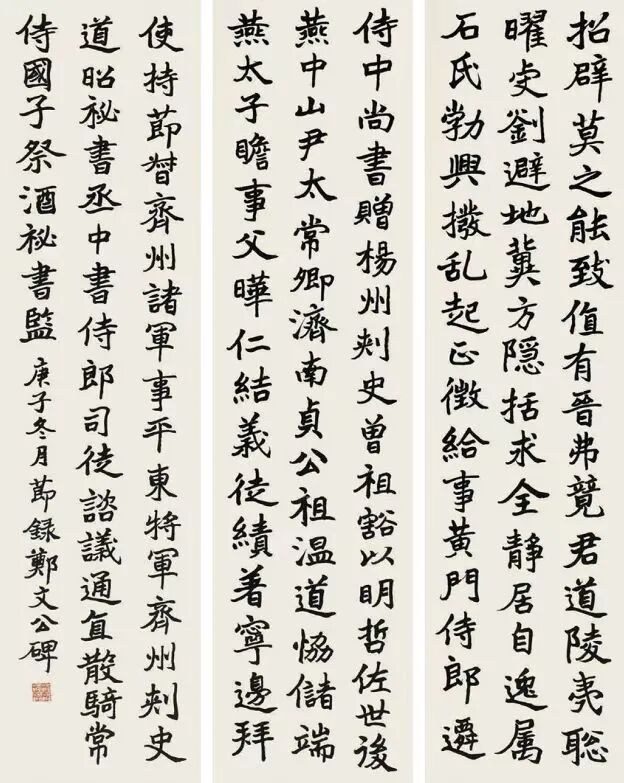 招辟莫之能致值有晉弗競君道陵夷聡
曜虐劉避地冀方隐括求全静居自逸属
石氏勃興撥乱起正徵給事黄門侍郎遷
侍中尚書贈楊州刺史曾祖豁以明哲佐世後
燕中山尹太常卿濟南貞公祖温道恊儲端
燕太子瞻事父曄仁結義徒績著寧邊拜
使持節督齊州諸軍事平東将軍齊州刺史
道昭祕書丞中書侍郎司徒諮議通直散騎常
侍國子祭酒祕書監 庚子冬月節録鄭文公碑